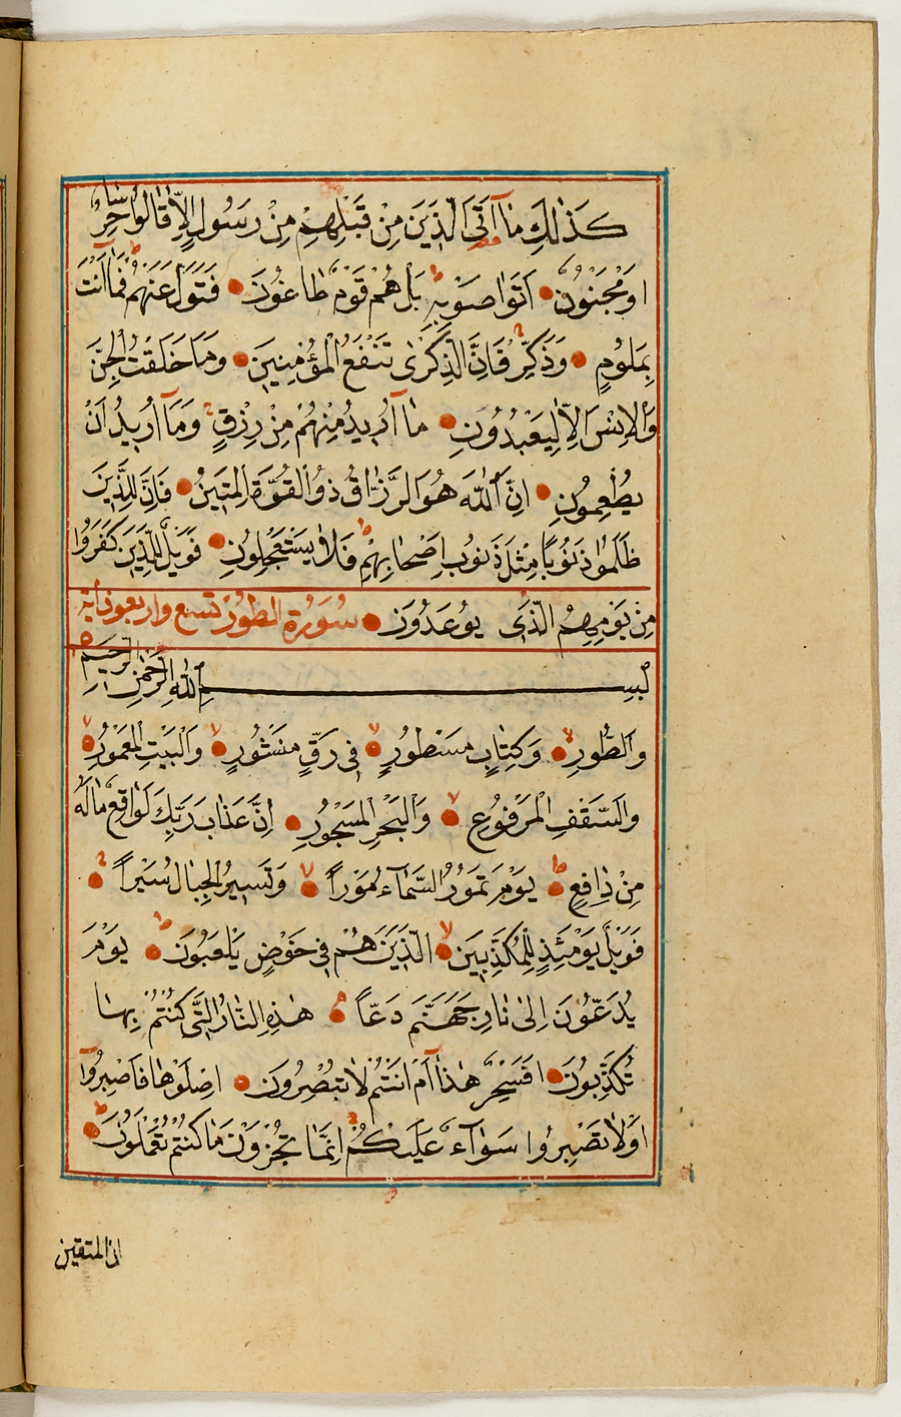 كَذٰلِكَ مٰٓا اَتَى الَّذٖينَ مِنْ قَبْلِهِمْ مِنْ رَسُولٍ اِلّٰا قٰالُوا سٰاحِرٌ
اَوْ مَجْنُونٌ اَتَوٰاصَوْا بِهٖ بَلْ هُمْ قَوْمٌ طٰاغُونَ فَتَوَلَّ عَنْهُمْ فَمٰٓا اَنْتَ
بِمَلُومٍ وَذَكِّرْ فَاِنَّ الذِّكْرٰى تَنْفَعُ الْمُؤْمِنٖينَ وَمٰا خَلَقْتُ الْجِنَّ
وَالْاِنْسَ اِلّٰا لِيَعْبُدُونِ مٰٓا اُرٖيدُ مِنْهُمْ مِنْ رِزْقٍ وَمَٓا اُرٖيدُ اَنْ
يُطْعِمُونِ اِنَّ اللّٰهَ هُوَ الرَّزّٰاقُ ذُو الْقُوَّةِ الْمَتٖينُ فَاِنَّ لِلَّذٖينَ
ظَلَمُوا ذَنُوبًا مِثْلَ ذَنُوبِ اَصْحٰابِهِمْ فَلٰا يَسْتَعْجِلُونِ فَوَيْلٌ لِلَّذٖينَ كَفَرُوا
مِنْ يَوْمِهِمُ الَّذٖى يُوعَدُونَ سُورَةُ الطُّورِ تسع واربعون اية
بِسْمِ اللّٰهِ الرَّحْمٰنِ الرَّحٖيمِ
وَالطُّورِ وَكِتٰابٍ مَسْطُورٍ فٖى رَقٍّ مَنْشُورٍ وَالْبَيْتِ الْمَعْمُورِ
وَالسَّقْفِ الْمَرْفُوعِ وَالْبَحْرِ الْمَسْجُورِ اِنَّ عَذٰابَ رَبِّكَ لَوٰاقِعٌ مٰالَهُ
مِنْ دٰافِعٍ يَوْمَ تَمُورُ السَّمَٓاءُ مَوْرًا وَتَسٖيرُ الْجِبٰالُ سَيْرًا
فَوَيْلٌ يَوْمَئِذٍ لِلْمُكَذِّبٖينَ الَّذٖينَ هُمْ فٖى خَوْضٍ يَلْعَبُونَ يَوْمَ
يُدَعُّونَ اِلٰى نٰارِ جَهَنَّمَ دَعًّا هٰذِهِ النّٰارُ الَّتٖى كُنْتُمْ بِهٰا
تُكَذِّبُونَ اَفَسِحْرٌ هٰذٰٓا اَمْ اَنْتُمْ لٰا تُبْصِرُونَ اِصْلَوْهٰا فَاصْبِرُٓوا
اَوْ لٰا تَصْبِرُوا سَوَٓاءٌ عَلَيْكُمْ اِنَّمٰا تُجْزَوْنَ مٰا كُنْتُمْ تَعْمَلُونَ
ان المتقين